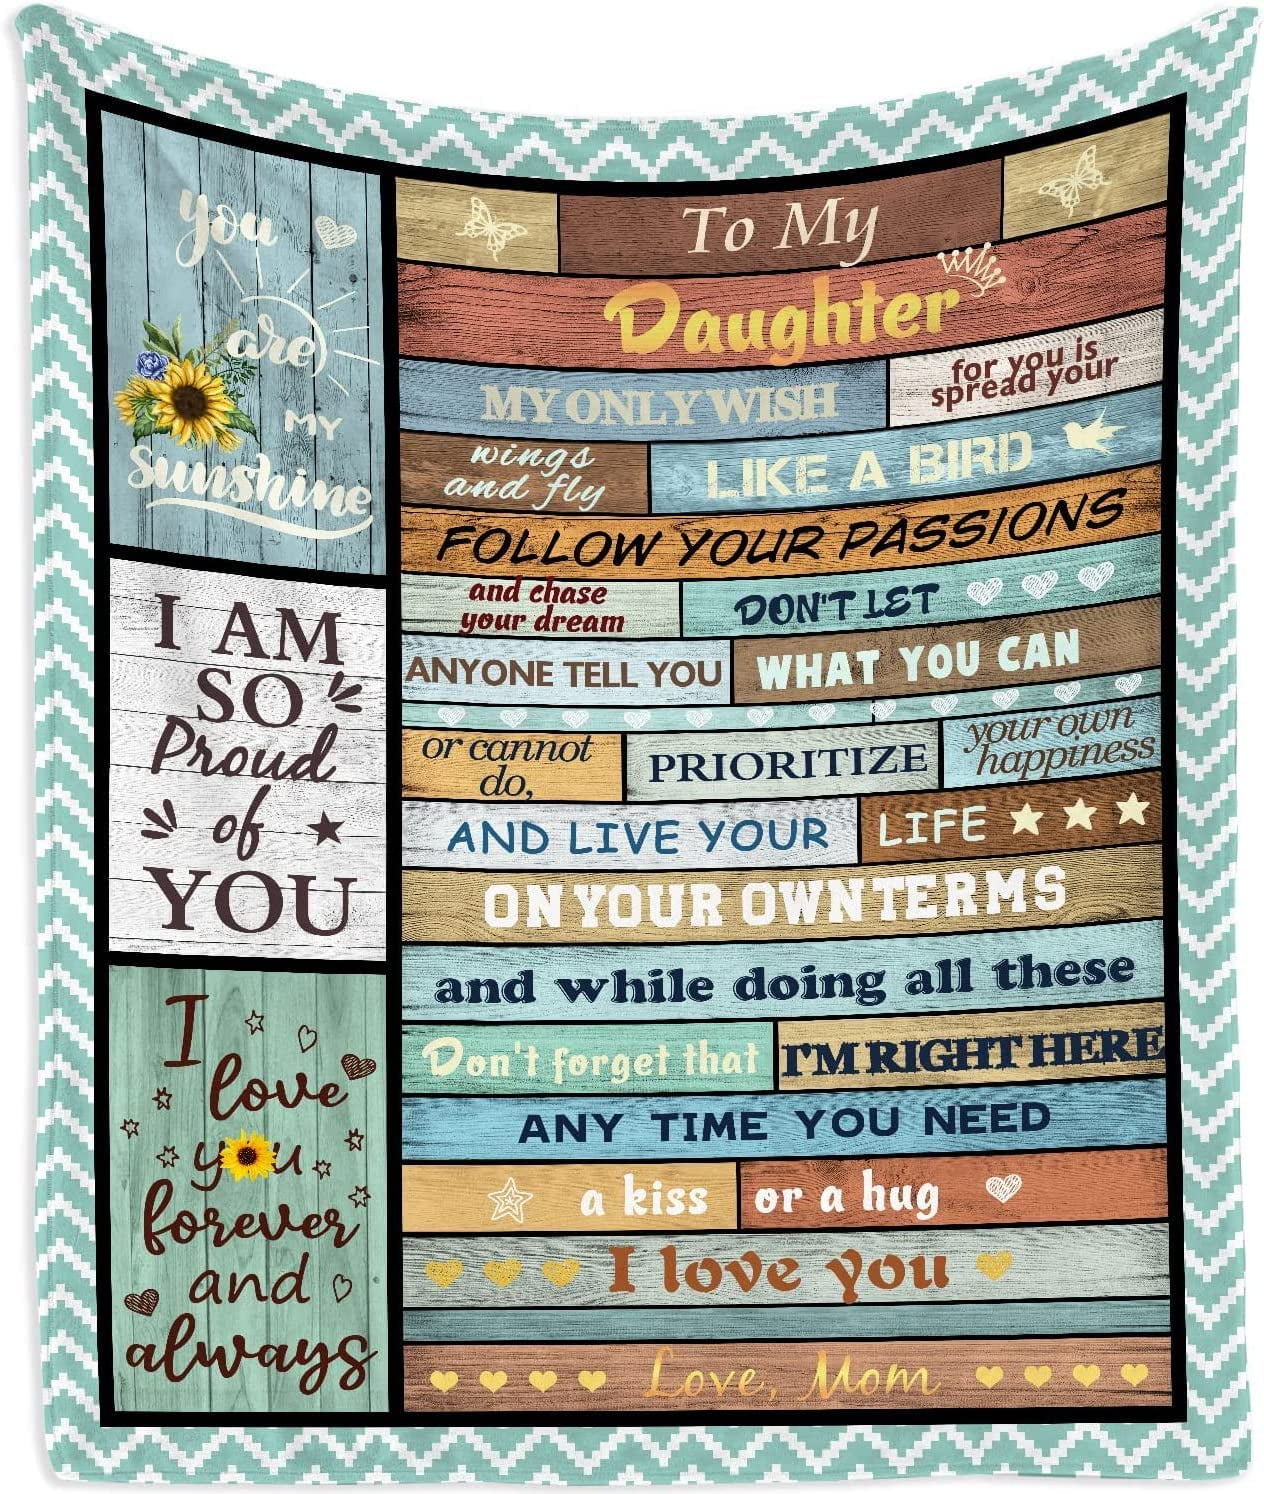 you
are
MY
sunshine
I AM
SO
Proud
of
YOU
I
love
you
forever
and
always
To My
Daughter
MY ONLY WISH
for you is
spread your
wings
and fly
LIKE A BIRD
FOLLOW YOUR PASSIONS
and chase
your dream
DON'T LET
ANYONE TELL YOU
WHAT YOU CAN
or cannot
do,
PRIORITIZE
your own
happiness
AND LIVE YOUR
LIFE
ON YOUR OWN TERMS
and while doing all these
Don't forget that
I'M RIGHT HERE
ANY TIME YOU NEED
a kiss
or a hug
I love you
Love, Mom